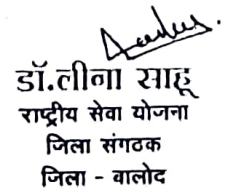 डॉ.लीना साहू
राष्ट्रीय सेवा योजना
जिला संगठक
जिला - बालोद